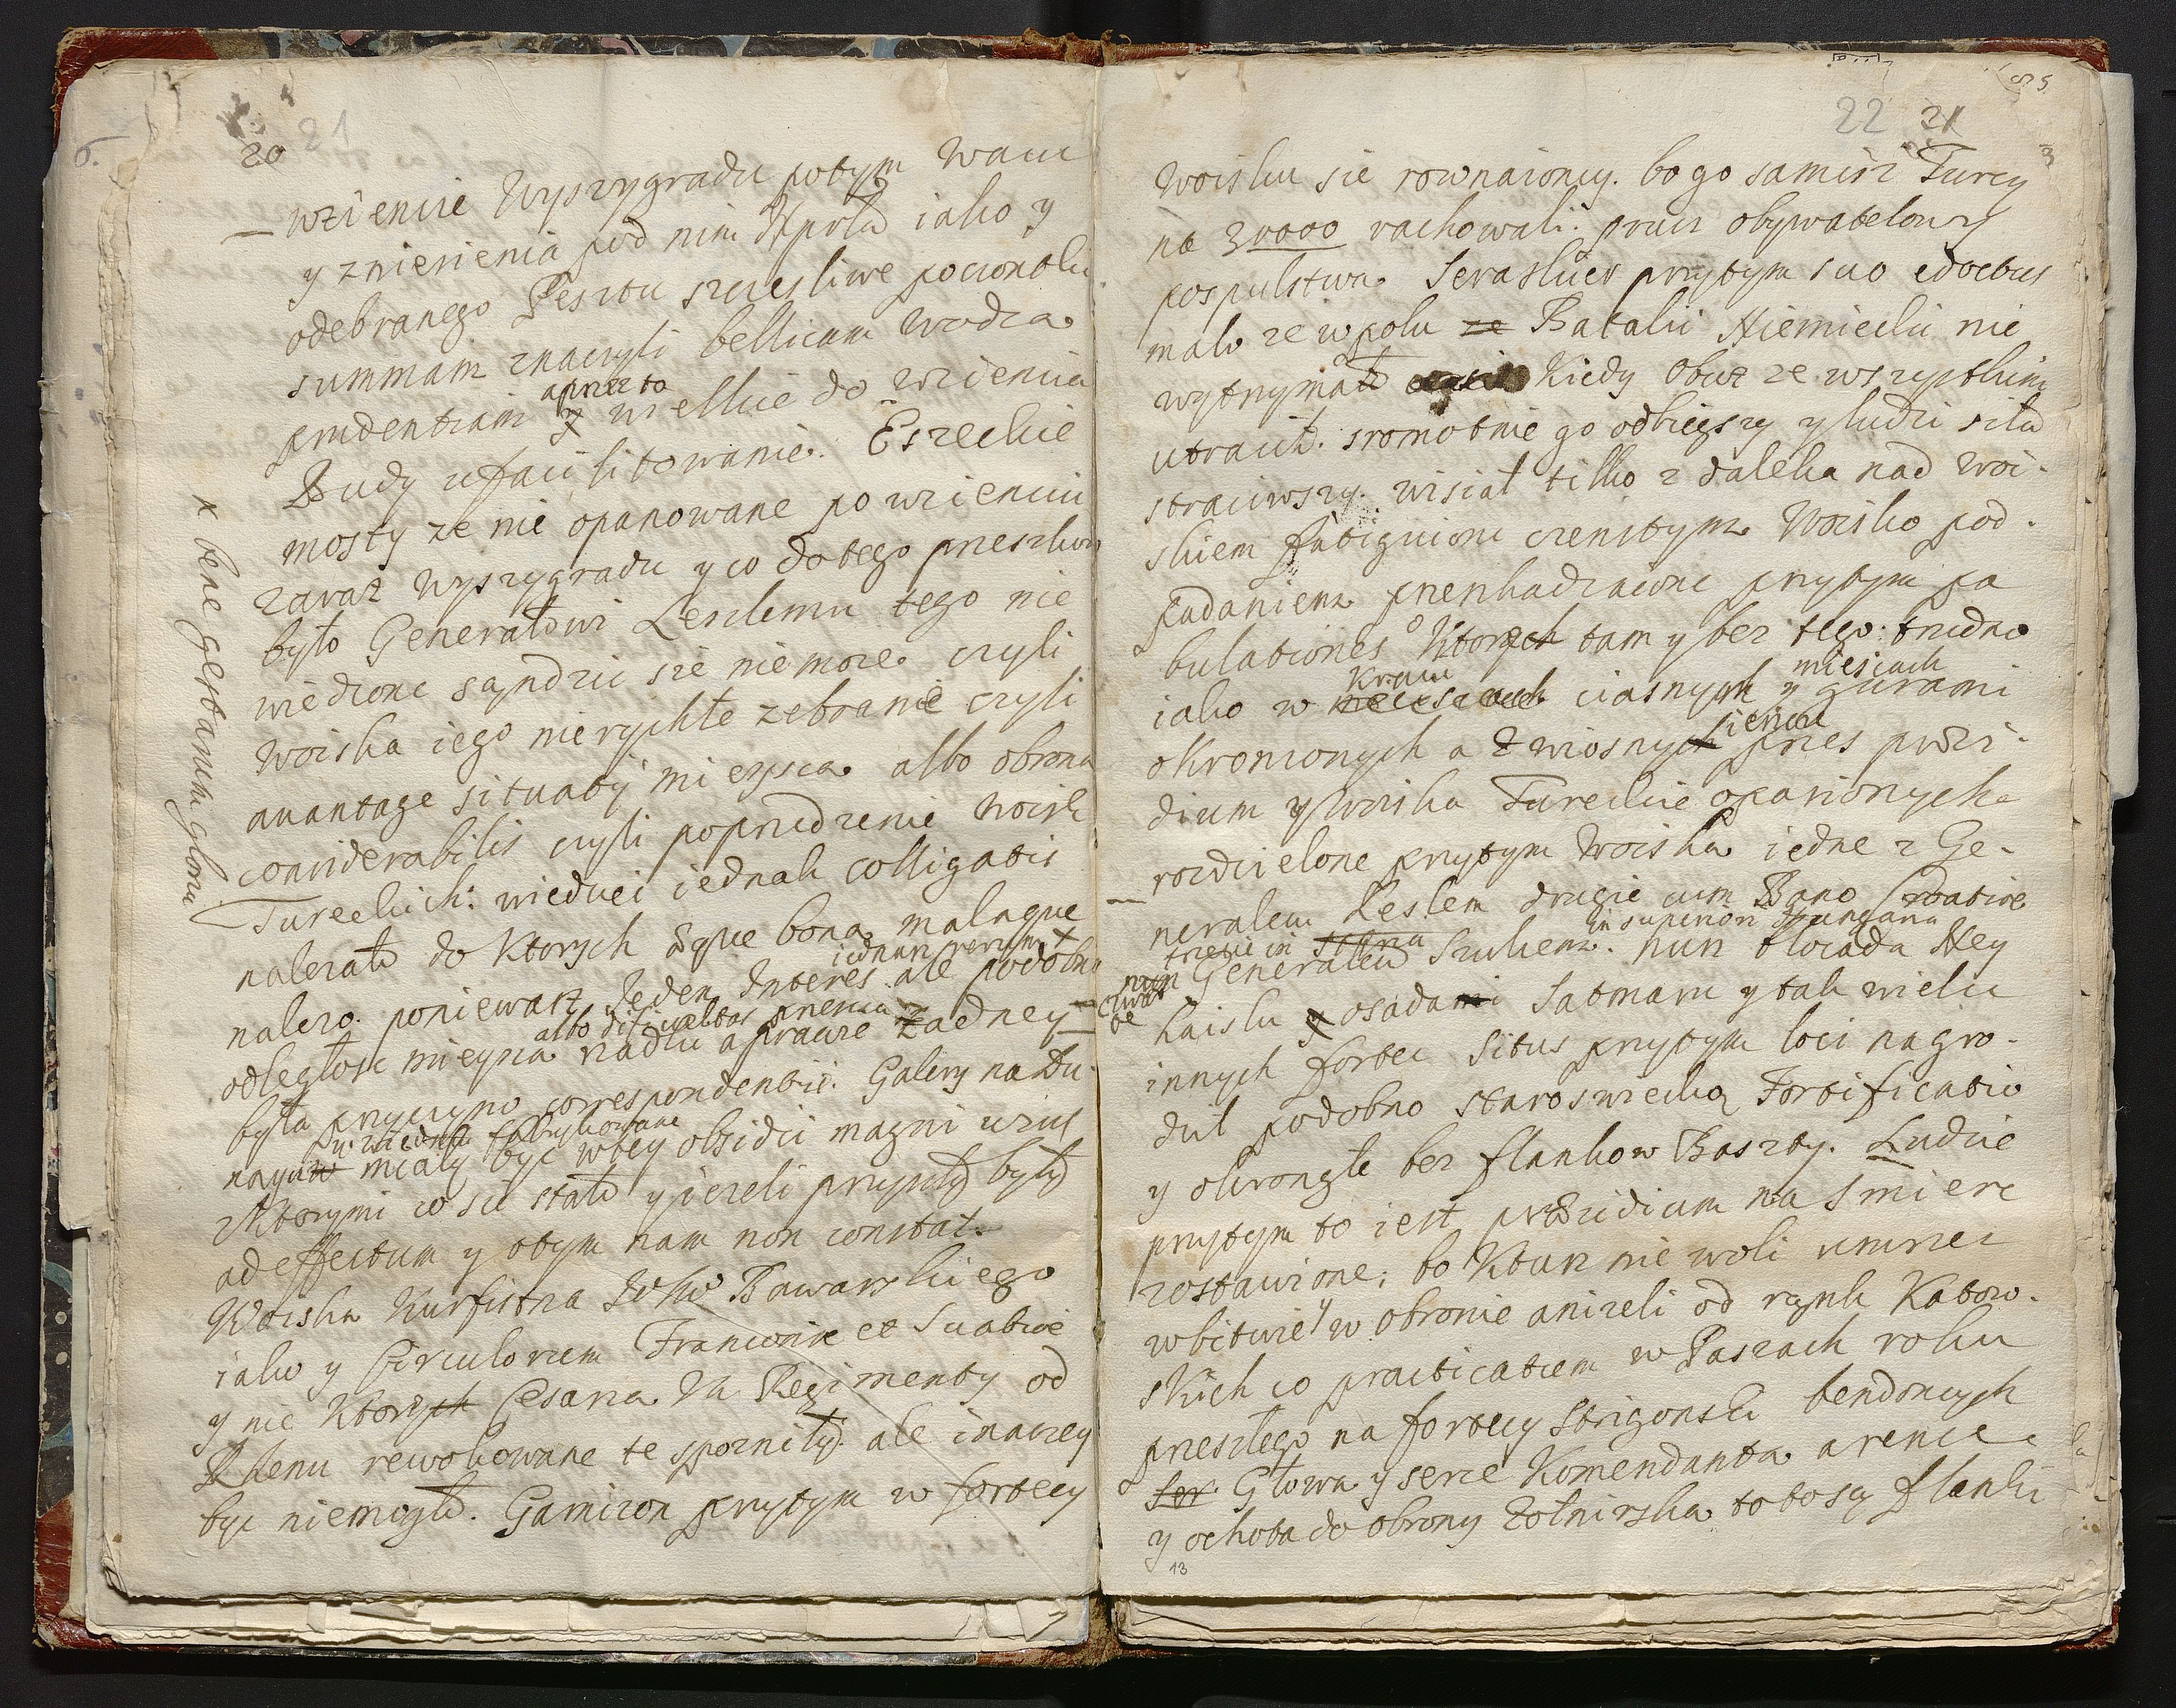 20 21
wziencie Wyszygradu potym Waciu
y zniesienia pod nim Nprla iako y
odebranego Pesztu szczesliwe początki
summam znaczyli bellicam wodza
prudentiam aprzez to wielkie do wziencia
Budy ufacilitowanie. Eszeckie
mosty ze nie opanowane po wzienciu
zaraz Wyszygradu y co do tego przeszkodą
było Generałowi Leslemu tego nie
wiedzonc sąndzic sie niemoze czyli
Woiska iego nierychłe zebranie czyli
avantage situatij mieysca albo obrona
considerabilis czyli poprzedzenie Woisk
Tureckich: wiedziec iednak colligatis
nalezało do ktorych æque bona malaque
nalezo. poniewaz Jeden Interes ale podobno
iednan verum x
odległosc mieysca albo dificultas przeiazdu a prawie zadney
była przyczyno correspondentii. Galery na Du-
nayu w Wiedniu fabrykowane miały byc w tey obsidii magni usus
z ktorymi co sie stało y iezeli przyszły były
ad effectum y o tym nam non constat.
Woiska Kurfistrza Bawarskiego
iako y Circulorum Franconiæ et Suabiæ
y nie ktorych Cesarza Regimenty od
Rhenu rewokowane te spozniły. ale inaczey
byc niemogło. Garnizon przytym w fortecy
x bene gerbanda gloria
22 21
Woisku sie rownaioncy. bo go samisz Turcy
na 30000 rachowali. præter obywatelow y
pospulstwa. Seraskier przytym suo edoctus
malo ze w polu ze Batalii Niemieckii nie
wytrzymał Kiedy Oboz ze wszystkim
utracił. sromotnie go odbiegszy y ludzi siła
straciwszy. wisiał tilko z daleka nad woi-
skiem fatiguionc czenstym Woisko pod-
padaniem przenkadzaionc przytym pa
bulationes o ktorych tam y bez tego trudno
iako w Kraiu ciasnym y miescach gurami
okronzonych a z wiosny sienow przes præsi-
dium y Woiska Tureckie opasionych
rozdzielone przytym Woiska iedne z Ge-
neralem Leslem drugie cum Bano Croatiæ
trzecie in superiori Hungaria
Generałem Szulcem. nuz blocada Ney
haislu y osadami Satmaru y tak wielu
innych fortec Situs przytym loci nagro-
dził podobno staroswiecką Fortificatio
y okrongłe bez flankow Baszty. Ludzie
przytym to iest præsidium na smierc
zostawione; bo ktusz nie woli umrzec
w bitwie y w obronie anizeli od ręnk Katow-
skich co practicatum w Baszach roku
przeszłego na fortecy Strigonski bendoncych
Głowa y serce Komendanta a rence
y ochota do obrony zołnirska to to są flanki
13